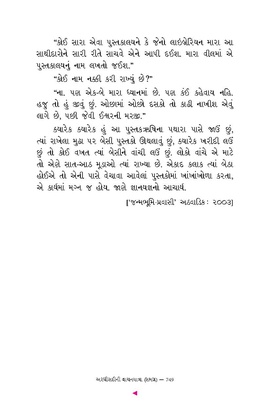 “કોઈ સારા એવા પુસ્તકાલયને કે જેનો લાઇબ્રેરિયન મારા આ
સાથીદારોને સારી રીતે સાચવે એને આપી દઈશ. મારા વીલમાં એ
પુસ્તકાલયનું નામ લખતો જઈશ.”
“કોઈ નામ નક્કી કરી રાખ્યું છે?”
“ના. પણ એક-બે મારા ધ્યાનમાં છે. પણ કંઈ કહેવાય નહિ.
હજુ તો હું જીવું છું. ઓછામાં ઓછો દસકો તો કાઢી નાખીશ એવું
લાગે છે, પછી જેવી ઈશ્વરની મરજી.”
ક્યારેક ક્યારેક હું આ પુસ્તકઋષિના પથારા પાસે જાઉં છું,
ત્યાં રાખેલા મુડા પર બેસી પુસ્તકો ઊથલાવું છું, ક્યારેક ખરીદી લઉં
છું તો કોઈ વખત ત્યાં બેસીને વાંચી લઉં છું. લોકો વાંચે એ માટે
તો એણે સાત-આઠ મુડાઓ ત્યાં રાખ્યા છે. એકાદ કલાક ત્યાં બેઠા
હોઈએ તો એની પાસે વેચાવા આવેલાં પુસ્તકોમાં ખાંખાંખોળા કરતા,
એ કાર્યમાં મગ્ન જ હોય. જાણે જ્ઞાનયજ્ઞનો આચાર્ય.
[‘જન્મભૂમિ-પ્રવાસી’ અઠવાડિક : ૨૦૦૩]